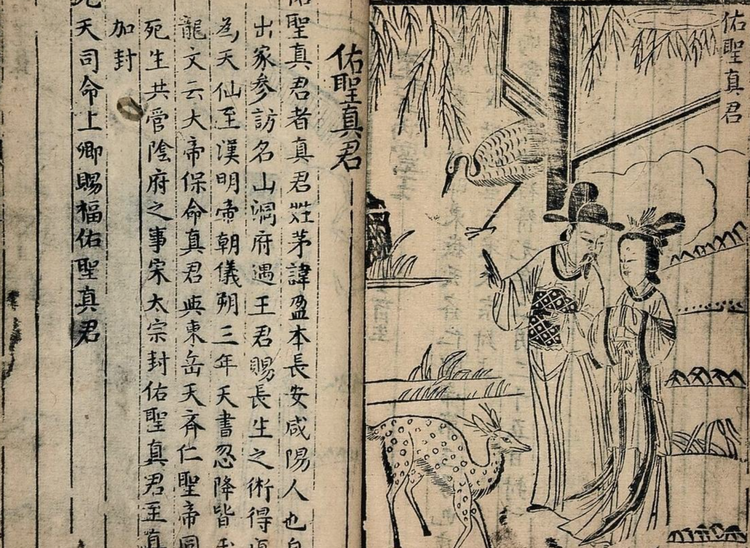 佑聖真君
佑聖真君
佑聖真君者真君姓茅諱盈本長安咸陽人也
出家參訪名山洞府遇王君賜長生之術得
為天仙至漢明帝朝儀朔三年天書忽降皆玉
龍文云大帝保命真君與東岳天齊仁聖帝同
死生共管陰府之事宋太宗封佑聖真君至真
加封
天司命上卿賜福佑聖真君